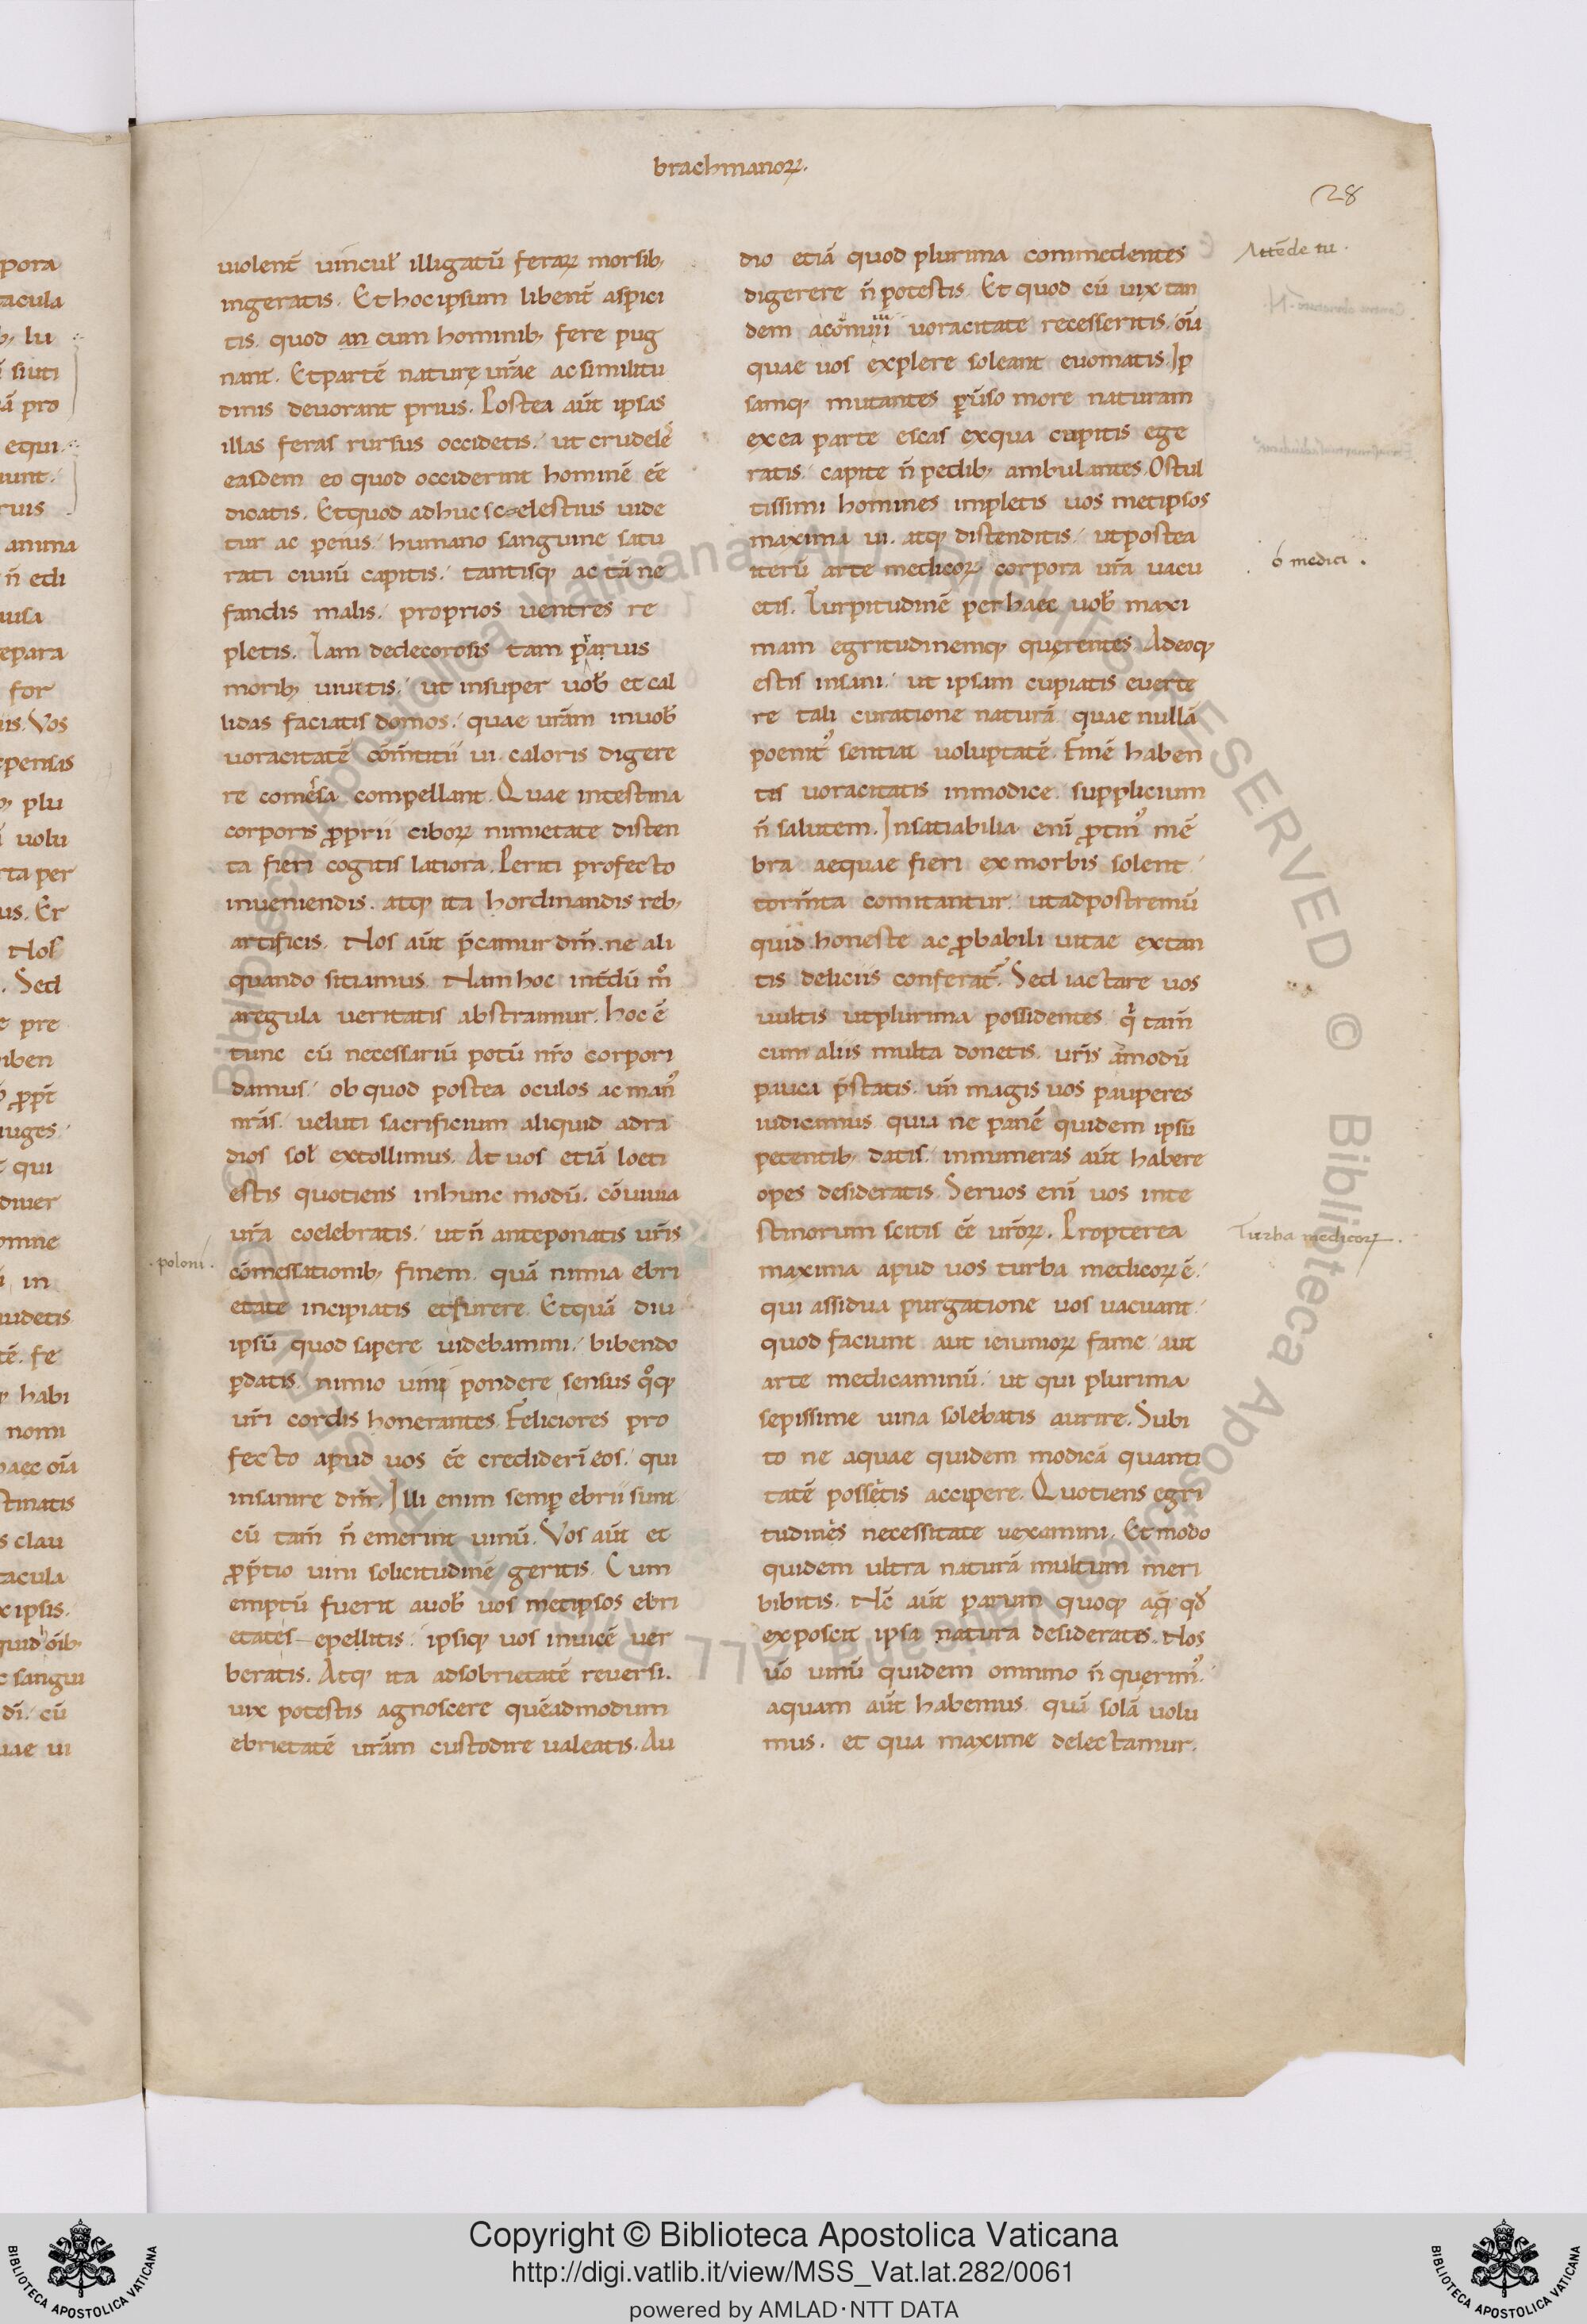 brachmanoꝝ.
28
uiolent̄ uincul̄ illigatū feraꝝ morsib;
ingeratis. Et hoc ipsum libent̄ aspici
tis. quod an cum hominib; fere pug
nant. Et partē naturę ur̄ae ac similitu
dinis deuorant prius. Postea aūt ipsas
illas feras rursus occidetis. ut crudeles
easdem eo quod occiderint hominē eē
dicatis. Et quod adhuc scelestius uide
tur ac peius. humano sanguine satu
rati ciuiū capitis. tantisq; ac tā ne
fandis malis. proprios uentres re
pletis. Iam dedecorosis tam prauis
morib; uiuitis. ut insuper uob̄ et cal
lidas faciatis domos. quae ur̄am in uob̄
uoracitatē ui caloris digere
re comesa compellant. Quae intestina
corporis ꝓprii ciboꝝ nimietate disten
ta fieri cogitis latiora. Periti profecto
inueniendis. atq; ita hordinandis reb;
artificis. Nos aūt p̄camur dm̄. ne ali
quando sitiamus. Nam hoc int̄dū m̊
a regula ueritatis abstraimur. hoc ē
tunc cū necessariū potū nr̄o corpori
damus. ob quod postea oculos ac man᾽
nr̄as. ueluti sacrificium aliquid ad ra
dios sol̄ extollimus. At uos etiā loeti
estis quotiens in hunc modū. cōuiuia
ur̄a coelebratis. ut n̄ anteponatis ur̄is
.poloni.
cōmessationib; finem. quā nimia ebri
etate incipiatis et furere. Et quā diu
ipsū quod sapere uidebamini. bibendo
ꝑdatis. nimio uini pondere sensus q̊q;
ur̄i cordis honerantes. Feliciores pro
fecto apud uos eē credideri eos. qui
insanire dnr̄. Illi enim semꝑ ebrii sunt
cū tam̄ n̄ emerint uinū. Vos aūt et
ꝓ p̄tio uini solicitudinē geritis. Cum
emptū fuerit a uob̄ uos metipsos ebri
etates epellitis. ipsiq; uos inuicē uer
beratis. Atq; ita ad sobrietatē reuersi.
uix potestis agnoscere quēadmodum
ebrietatē ur̄am custodire ualeatis. Au
dio etiā quod plurima commedentes
Attēde tu.
digerere n̄ potestis. Et quod cū uix tan
dem a cōmuni uoracitate recesseritis. oīa
quae uos explere soleant euomatis. Ip
samq; mutantes ꝑuerso more naturam
ex ea parte escas ex qua cupitis ege
ratis. capite n̄ pedib; ambulantes. O stul
tissimi homines impletis uos metipsos
maxima ui. atq; distenditis. ut postea
iterū arte medicoꝝ corpora ur̄a uacu
ó medici.
etis. Turpitudinē per haec uob̄ maxi
mam egritudinemq; querentes. Adeoq;
estis insani. ut ipsam cupiatis euerte
re tali curatione naturā. quae nullā
poenit᾽ sentiat uoluptatē. Finē haben
tis uoracitatis inmodice. supplicium
n̄ salutem. Insatiabilia enī ꝓtin᾽ mē
bra aequae fieri ex morbis solent.
torm̄ta comitantur. ut ad postremū
quid honeste ac ꝓbabili uitae extan
tis deliciis conferat᾽. Sed iactare uos
uultis ut plurima possidentes. tam̄
cum aliis multa donetis. ur̄is amodū
pauca p̄statis. un̄ magis uos pauperes
iudicamus quia ne panē quidem ipsū
petentib; datis. innumeras aūt habere
opes desideratis. Seruos enī uos inte
stinorum scitis eē ur̄oꝝ. Propterea
Turba medicoꝝ.
maxima apud uos turba medicoꝝ ē.
qui assidua purgatione uos uacuant.
quod faciunt aut ieiunioꝝ fame aut
arte medicaminū. ut qui plurima
sepissime uina solebatis aurire. Subi
to ne aquae quidem modicā quanti
tatē possetis accipere. Quotiens egri
tudines necessitate uexamini. Et modo
quidem ultra naturā multum meri
bibitis. Nc̄ aūt parum quoq; aq̄ qd̄
exposcit ipsa natura desideratis. Nos
ūo uinū quidem omnino n̄ querim᾽.
aquam aūt habemus quā solā uolu
mus. et qua maxime delectamur.
Copyright © Biblioteca Apostolica Vaticana
http://digi.vatlib.it/view/MSS_Vat.lat.282/0061
powered by AMLAD·NTT DATA
BIBLIOTECA APOSTOLICA VATICANA
BIBLIOTECA APOSTOLICA VATICANA